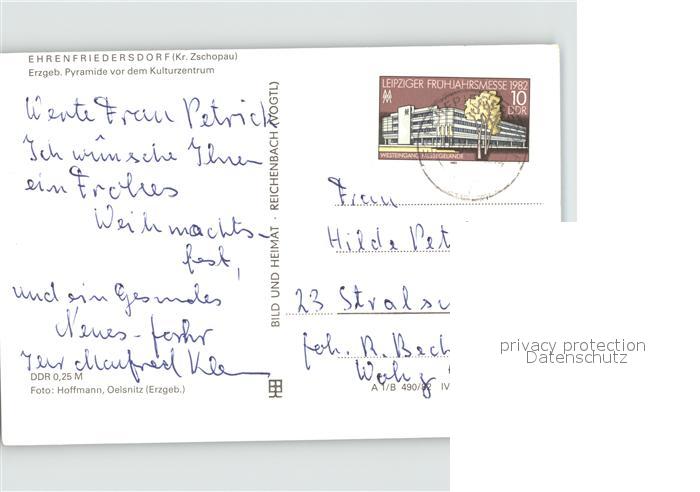 EHRENFRIEDERSDORF (Kr. Zschopau)
Erzgeb. Pyramide vor dem Kulturzentrum
Werte Frau Petrick
Ich wünsche Ihnen
ein Frohes
Weihnachts-
fest,
und ein Gesundes
Neues-Jahr
Ihr Manfred
DDR 0,25 M
Foto: Hoffmann, Oelsnitz (Erzgeb.)
BILD UND HEIMAT · REICHENBACH (VOGTL)
LEIPZIGER FRÜHJAHRSMESSE 1982
10
DDR
WESTEINGANG MESSEGELÄNDE
Frau
Hilde Pet
23 Strals
Joh. R. Bech
A 1/B 490/82 IV
privacy protection
Datenschutz